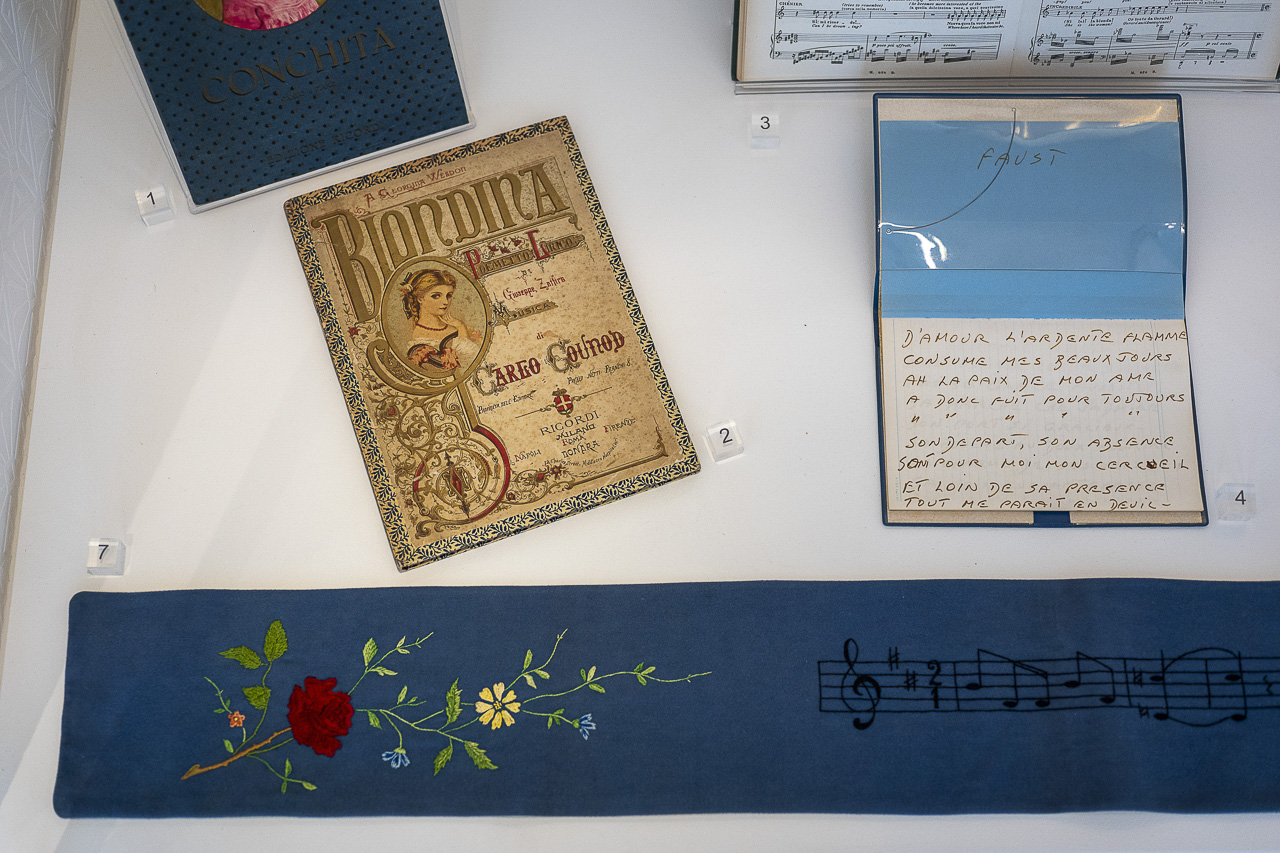 CONCHITA
1
A GEORGINA WELDON
BIONDINA
POEMETTO LIRICO
DI
Giuseppe Zaffira
MUSICA
di
CARLO GOUNOD
RICORDI
MILANO
NAPOLI ROMA FIRENZE
LONDRA
2
CHÉNIER
INCREDIBILE
3
FAUST
D'AMOUR L'ARDENTE FLAMME
CONSUME MES BEAUX JOURS
AH LA PAIX DE MON AME
A DONC FUIT POUR TOUJOURS
" " " " "
SON DEPART, SON ABSENCE
SONT POUR MOI MON CERCUEIL
ET LOIN DE SA PRESENCE
TOUT ME PARAIT EN DEUIL-
4
7